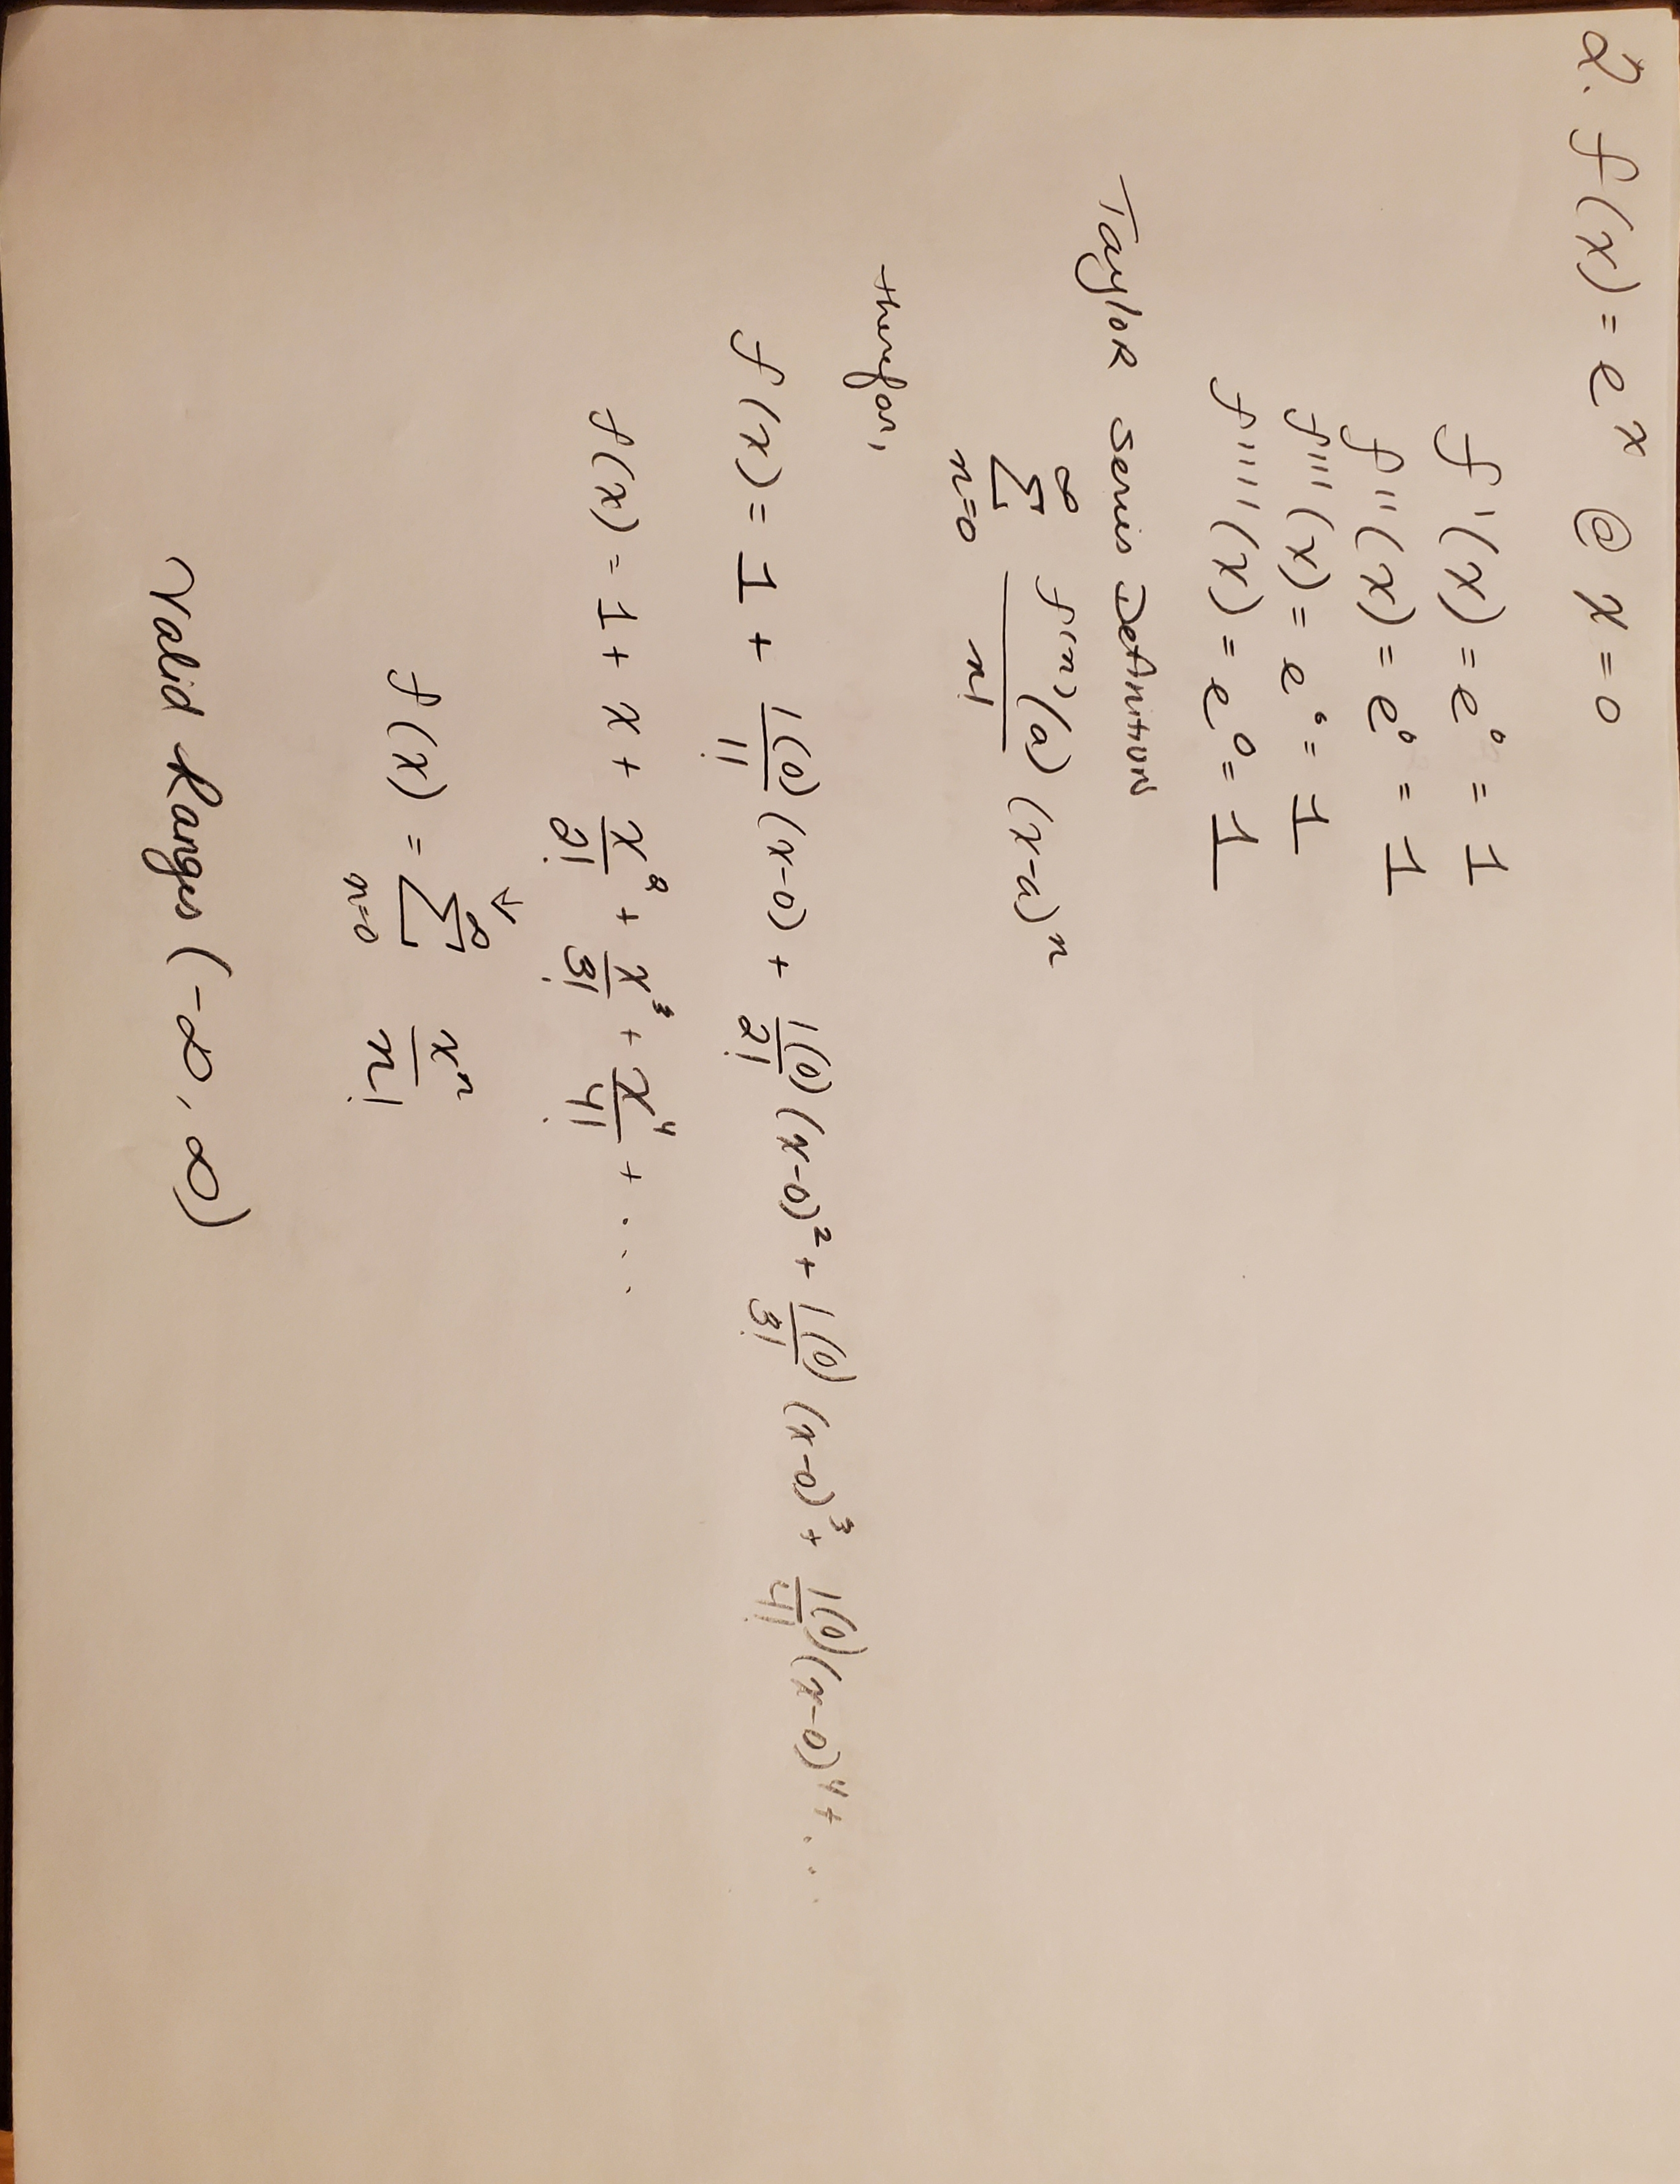 2. f(x) = e^x @ x = 0
f'(x) = e^0 = 1
f''(x) = e^0 = 1
f'''(x) = e^0 = 1
f'''''(x) = e^0 = 1
Taylor series Definition
∑_{n=0}^{∞} f^(n)(a)/n! (x-a)^n
therefor,
f(x) = 1 + 1(0)/1! (x-0) + 1(0)/2! (x-0)^2 + 1(0)/3! (x-0)^3 + 1(0)/4! (x-0)^4 + ...
f(x) = 1 + x + x^2/2! + x^3/3! + x^4/4! + ...
↓
f(x) = ∑_{n=0}^{∞} x^n/n!
Valid Ranges (-∞, ∞)